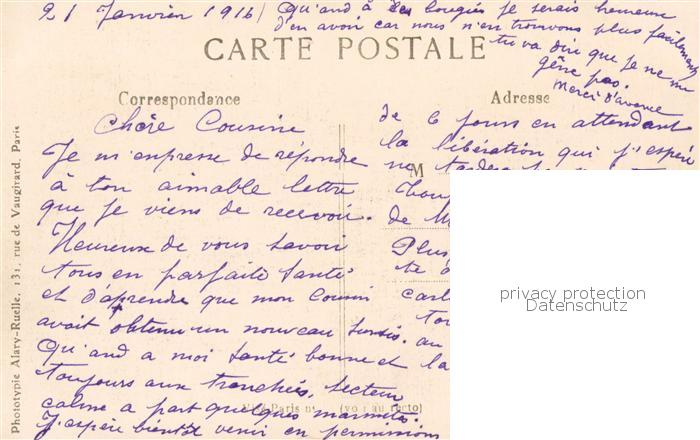 21 Janvier 1916 / Qu'and à des bougies je serais heureux
d'en avoir car nous n'en trouvons plus facilement
tu va dire que je ne me
gêne pas.
Merci d'avance
CARTE POSTALE
Correspondance
Adresse
Chère Cousine
Je m'enpresse de répondre
à ton aimable lettre
que je viens de recevoir.
Heureux de vous savoir
tous en parfaite santé
et d'aprendre que mon Cousin
avait obtenu un nouveau sursis.
Qu'and a moi santé bonne et
toujours aux tranchées, secteur
calme a part quelques marmites.
J'espère bientôt venir en permission
de 6 jours en attendant
la libération qui j'espère
ne
M
de
Plus
au
la
Paris (voir au recto)
Phototypie Alary-Ruelle, 131, rue de Vaugirard, Paris
privacy protection
Datenschutz